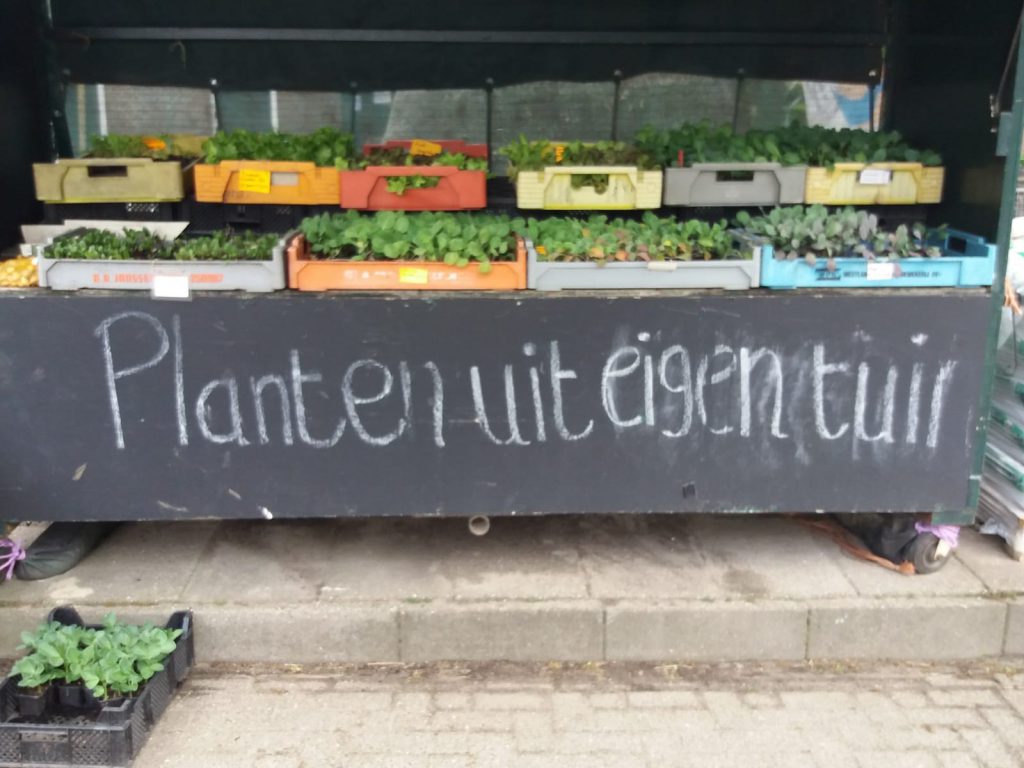 Planten uit eigen tuin